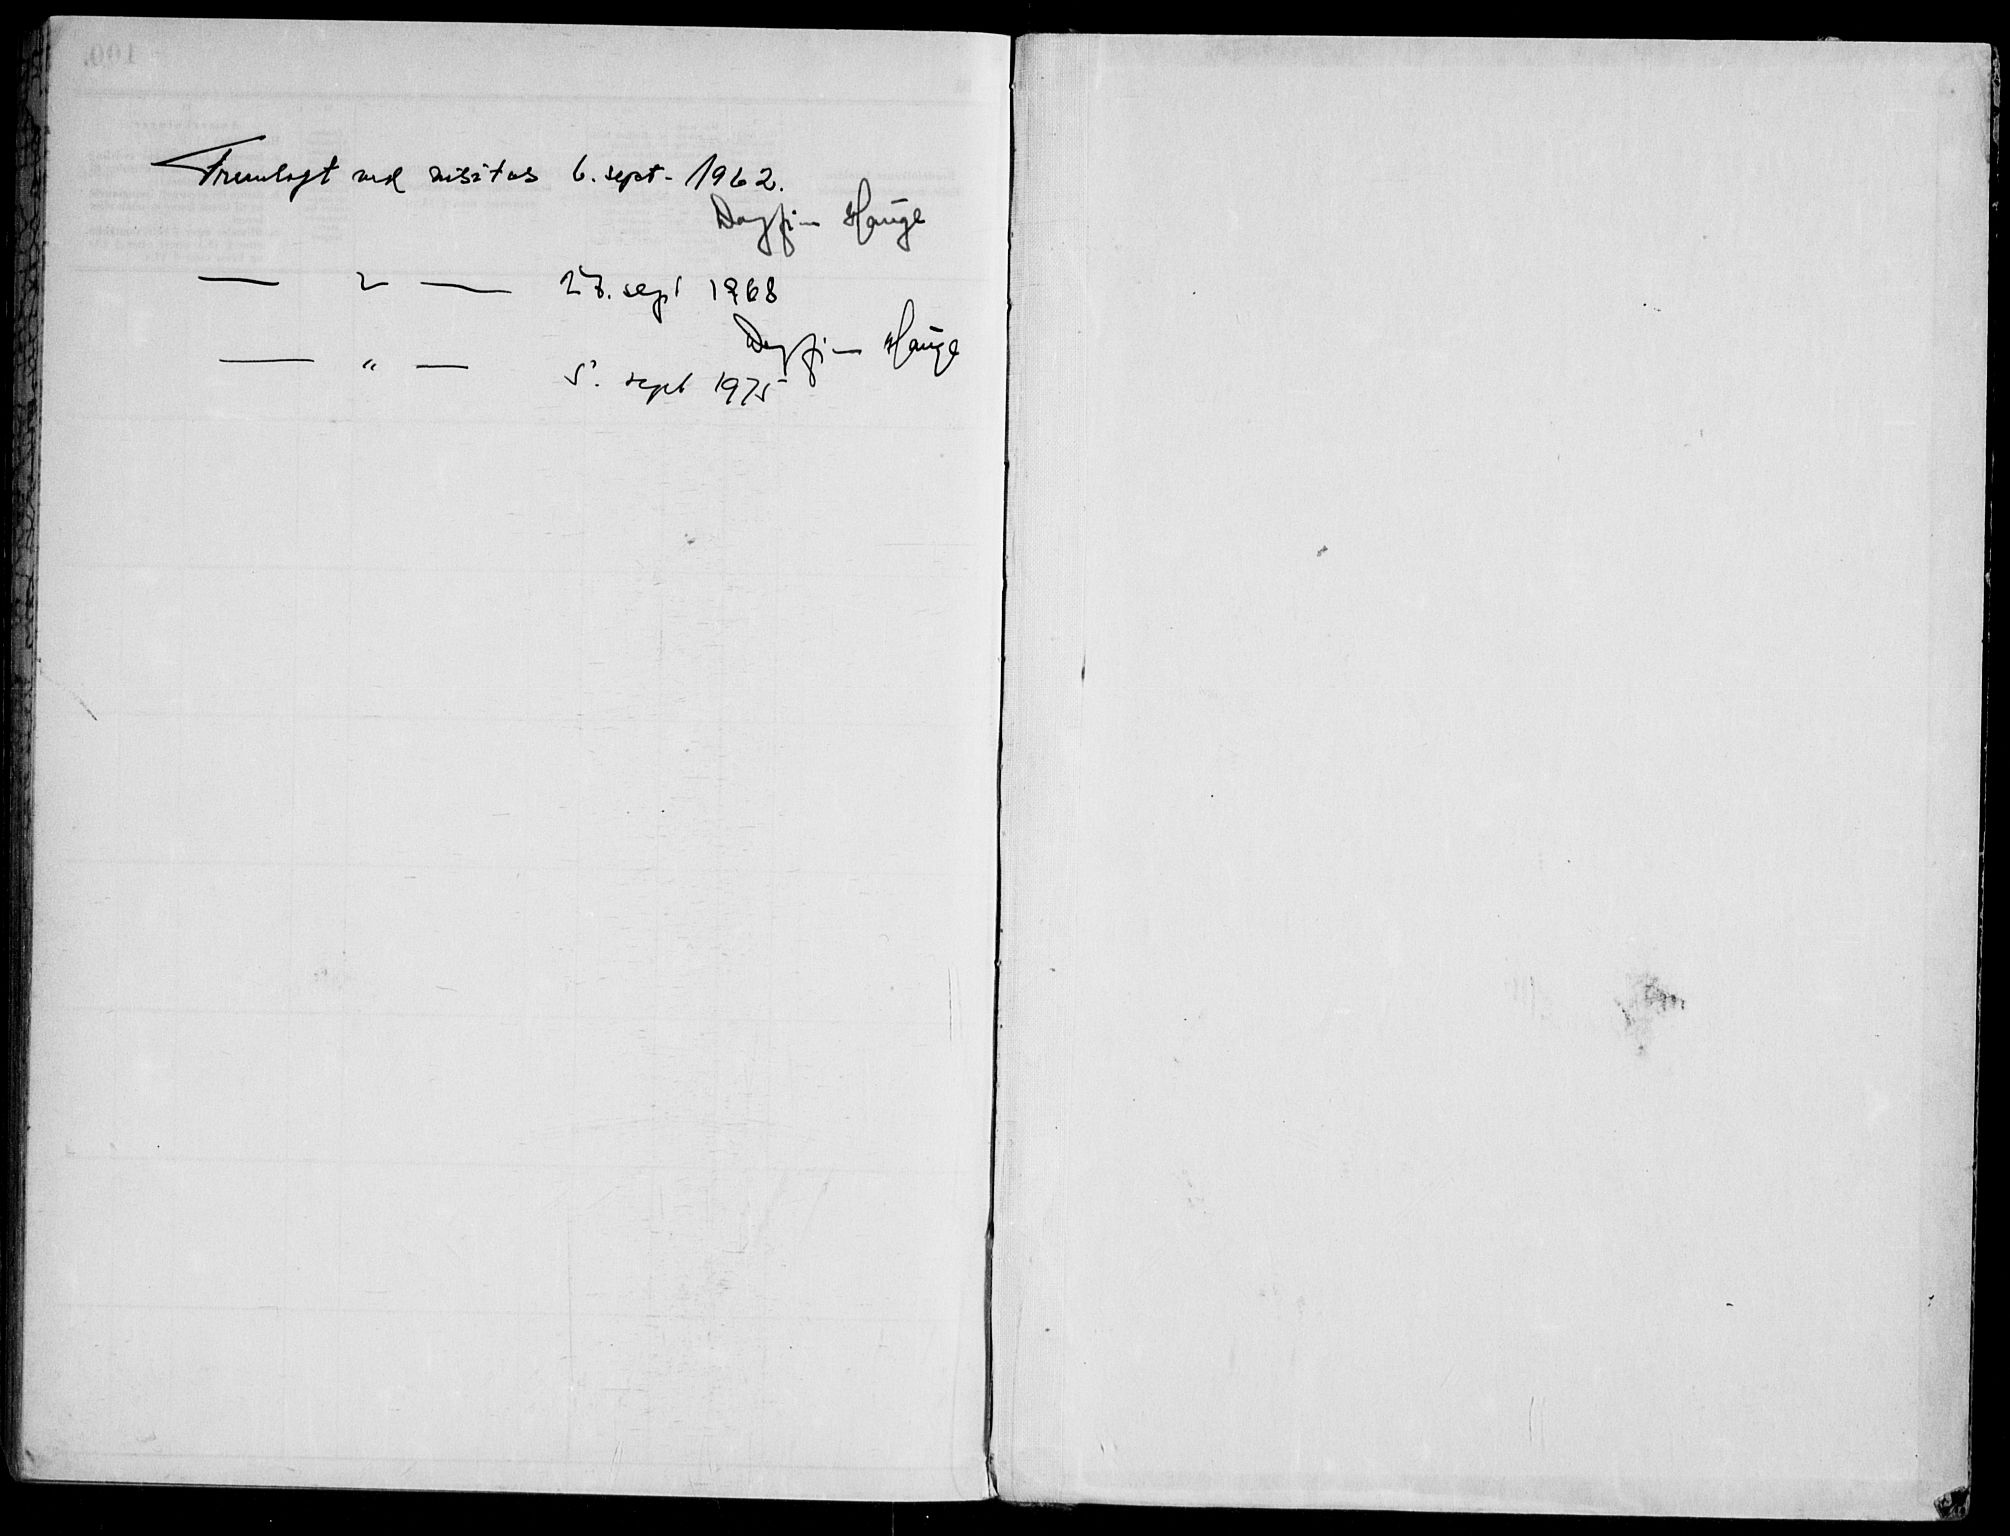 Fremlagt ved visitas 6. sept. 1962.
Dagfinn Hauge
— " — 27. sept 1968
Dagfinn Hauge
— " — 5. sept 1975
100.